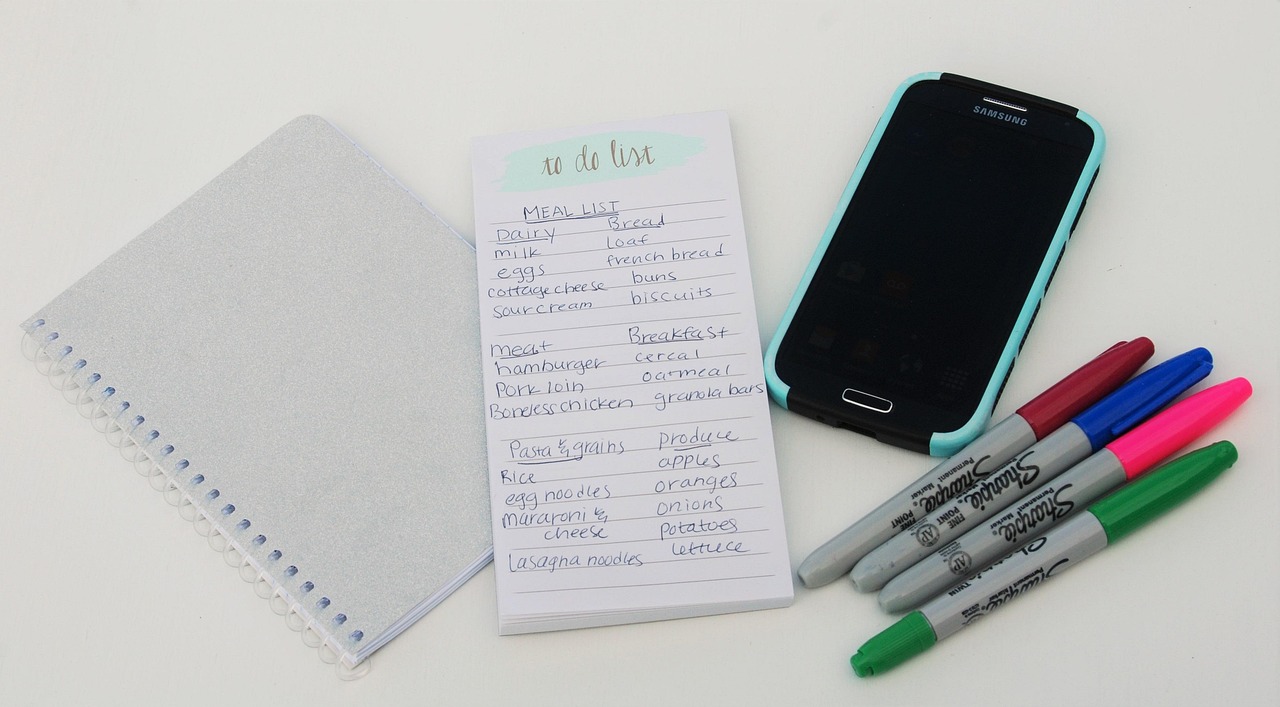 to do list
MEAL LIST
Dairy
milk
eggs
cottage cheese
sour cream
Bread
loaf
french bread
buns
biscuits
meat
hamburger
Pork loin
Boneless chicken
Breakfast
cereal
oatmeal
granola bars
Pasta & grains
Rice
egg noodles
macaroni &
cheese
lasagna noodles
produce
apples
oranges
onions
potatoes
lettuce
SAMSUNG
Sharpie
Permanent Marker
FINE POINT
Sharpie
Permanent Marker
FINE POINT
AP
Sharpie
Permanent Marker
AP
Sharpie
Permanent Marker
TWIN